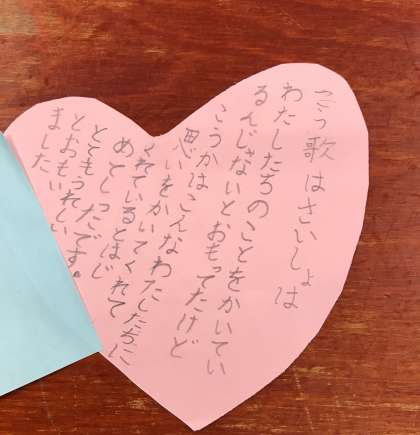 ごう歌はさいしょは
わたしたちのことをかいてい
るんじゃないとおもってたけど
こうかはこんなわたしたちに
思いをかいてくれて
くれているとはじ
めてしったです。
とてもうれしい
とおもい
ました